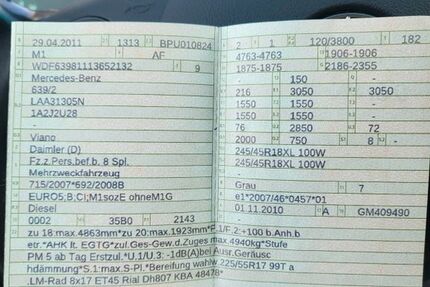 29.04.2011 1313 BPU010824
M1 AF
WDF63981113652132 9
Mercedes-Benz
639/2
LAA31305N
1A2J2U28
-
Viano
Daimler (D)
Fz.z.Pers.bef.b. 8 Spl.
Mehrzweckfahrzeug
715/2007*692/2008B
EURO5;B;CI;M1sozE ohneM1G
Diesel
0002 35B0 2143
2 1 120/3800 182
4763-4763 1906-1906
1875-1875 2186-2355
- 150 -
216 3050 3050
1550 1550 -
1550 1550 -
76 2850 72
2000 750 8 -
245/45R18XL 100W
245/45R18XL 100W
-
Grau 7
e1*2007/46*0457*01
01.11.2010 A GM409490
zu 18:mal.4863mm*zu 20:max.1923mm*
2:+100 b.Anh.b
etr.*AHK lt. EGTG*zul.Ges-Gew.d.Zuges max.4940kg*Stufe
PM 5 ab Tag Erstzul.*U.1/U.3: -1dB(A)bei Ausr.Geräusc
hdämmung*S.1:max.S-Pl.*Bereifung wahlw.225/55R17 99T a
.LM-Rad 8x17 ET45 Rial Dh807 KBA 48478*